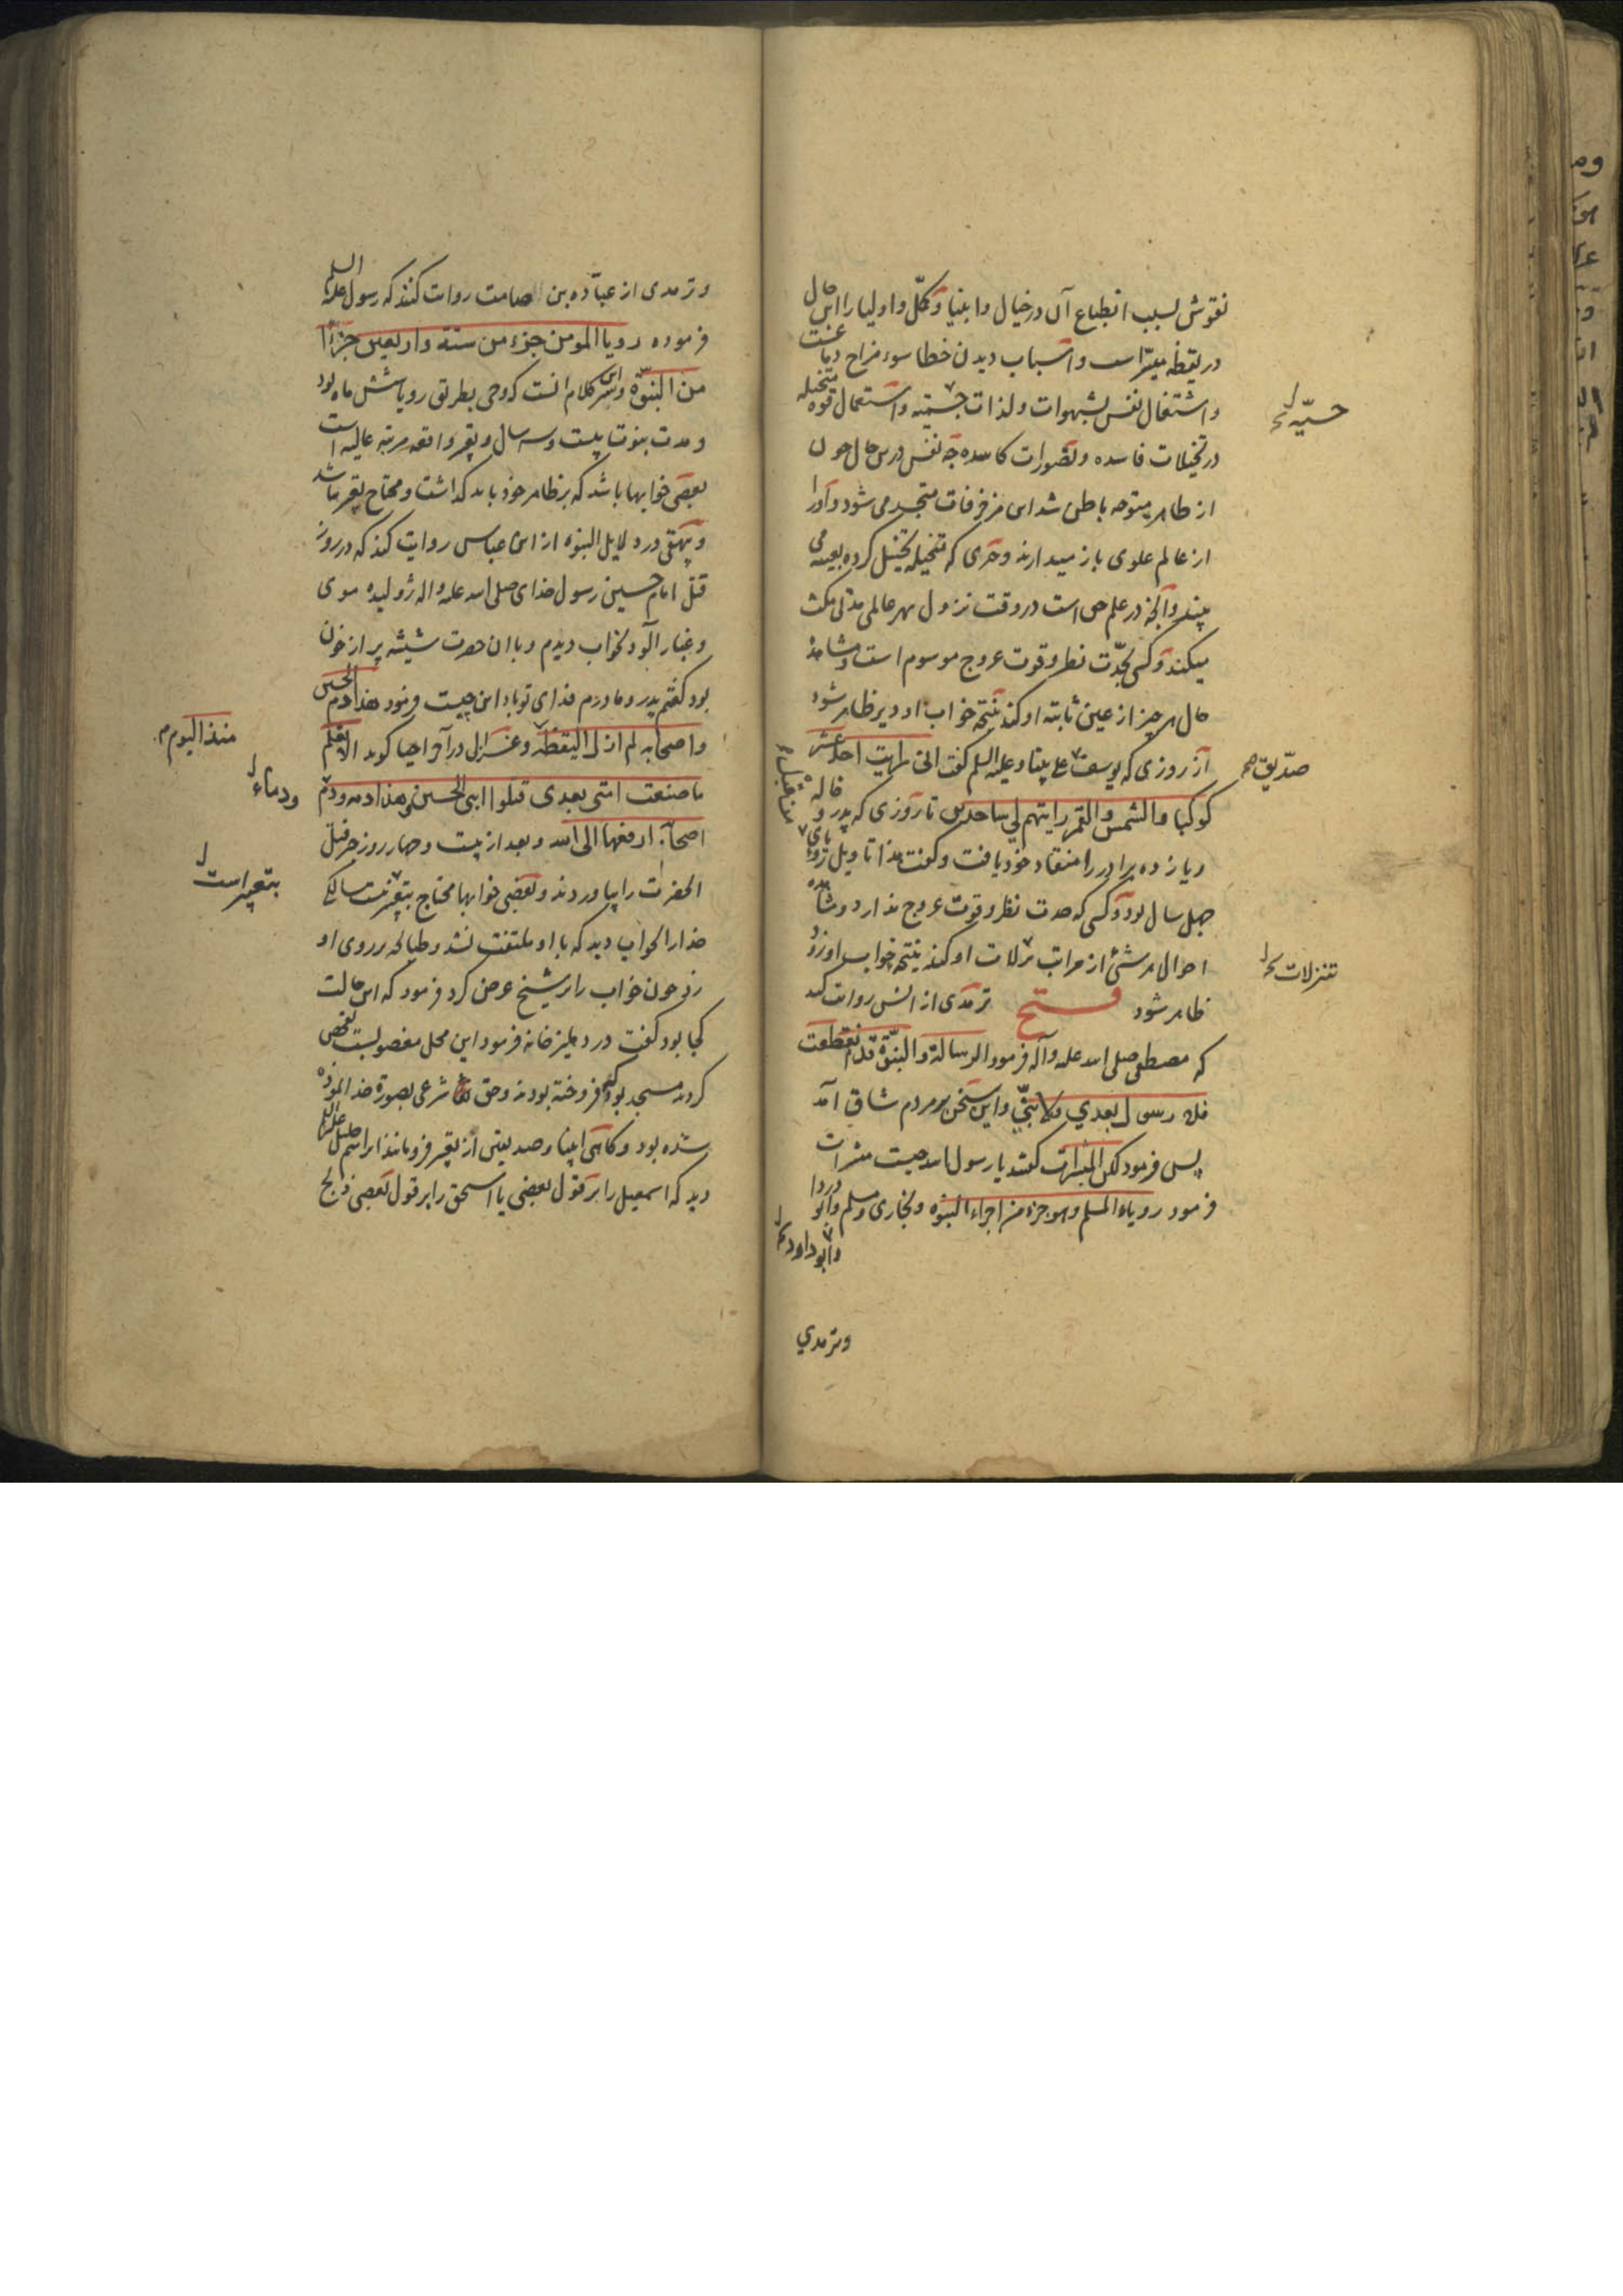 نقوش بسبب انطباع آن در خیال و انبیا و کمّل و اولیا را این حال
در یقظه میسّر است و اسباب دیدن خطا سوء مزاج دماغست
و اشتغال نفس بشهوات و لذات جسمیّه و استعمال قوه متخیله
حسیّه
در تخیلات فاسده و تصورات کاسده چه نفس درین حال چون
از ظاهر متوجه باطن شد این مزخرفات متجسد می شود و او را
از عالم علوی باز میدارند و چیزی که متخیله تخیل کرده بعینه می
بیند و آنچه در علم حق است در وقت نزول بهر عالمی مدتی مکث
میکند و کسی بحدّت نظر و قوت عروج موسوم است و مشاهده
حال هر چیز از عین ثابته او کند نتیجه خواب او دیر ظاهر شود
از روزی که یوسف علی نبینا و علیه السلم گفت انی رایت احد عشر
صدّیق صح
کوکبا والشمس والقمر رایتهم لی ساجدین تا روزی که پدر و خاله
و یازده برادر را منقاد خود یافت و گفت هذا تاویل رؤیای
من قبل
چهل سال بود و کسی که حدت نظر و قوت عروج ندارد و مشاهده
احوال هر شئ از مراتب تنزلات او کند نتیجه خواب او زود
تنزلات
ظاهر شود فتح ترمدی از انس روایت کند
که مصطفی صلی الله علیه وآله فرمود الرسالة والنبوّة قد انقطعت
فلا رسول بعدي ولا نبيّ و این سخن بر مردم شاق آمد
پس فرمود لکن المبشرات گفتند یا رسول الله چیست مبشرات
فرمود رویاء المسلم وهو جزء من اجزاء النبوه و بخاری و مسلم و ابو دردا
و ابو داود
وترمدي
و ترمدی از عبّاده بن الصامت روایت کنند که رسول علیه السلم
فرموده رویا المومن جزء من ستة واربعین جزءا
من النبوّة و سرّ این کلام آنست که وحی بطریق رویا شش ماه بود
و مدت نبوت بیست و سه سال و تعبیر واقعه مرتبه عالیه است
بعضی خوابها باشد که بر ظاهر خود باید گذاشت و محتاج تعبیر باشد
و بیهقی در دلایل النبوه از ابن عباس روایت کند که در روز
قتل امام حسین رسول خدای صلی الله علیه واله ژولیده موی
و غبار آلود بخواب دیدم و با ان حضرت شیشه پر از خون
بود گفتم پدر و مادرم فدای تو باد این چیست فرمود هذا دم الحسین
واصحابه لم ازل الیقظه و غزالی در آخر احیا گوید الا تعلم
منذ الیوم م
ما صنعت امتی بعدی قتلوا ابنی الحسین وهذا دمه ودم
ودماء
اصحابه ارفعها الی الله و بعد از بیست و چهار روز خبر قتل
الحضرت را بیاوردند و بعضی خوابها محتاج بتعبیر نیست سالکی
بتعبیر است
خدا را بخواب دید که با او ملتفت نشد و طپانچه بر روی او
زد چون خواب را بر شیخ عرض کرد فرمود که این حالت
کجا بود گفت در دهلیز خانه فرمود این محل مغصوبست تفحص
کردند مسجد بود که فروخته بودند و حق شرعی بصورة خدا نموده
شده بود و گاهی انبیا و صدیقین از تعبیر فرومانند ابراهیم خلیل علیه السلم
دید که اسمعیل را بر قول بعضی یا اسحق را بر قول بعضی ذبح